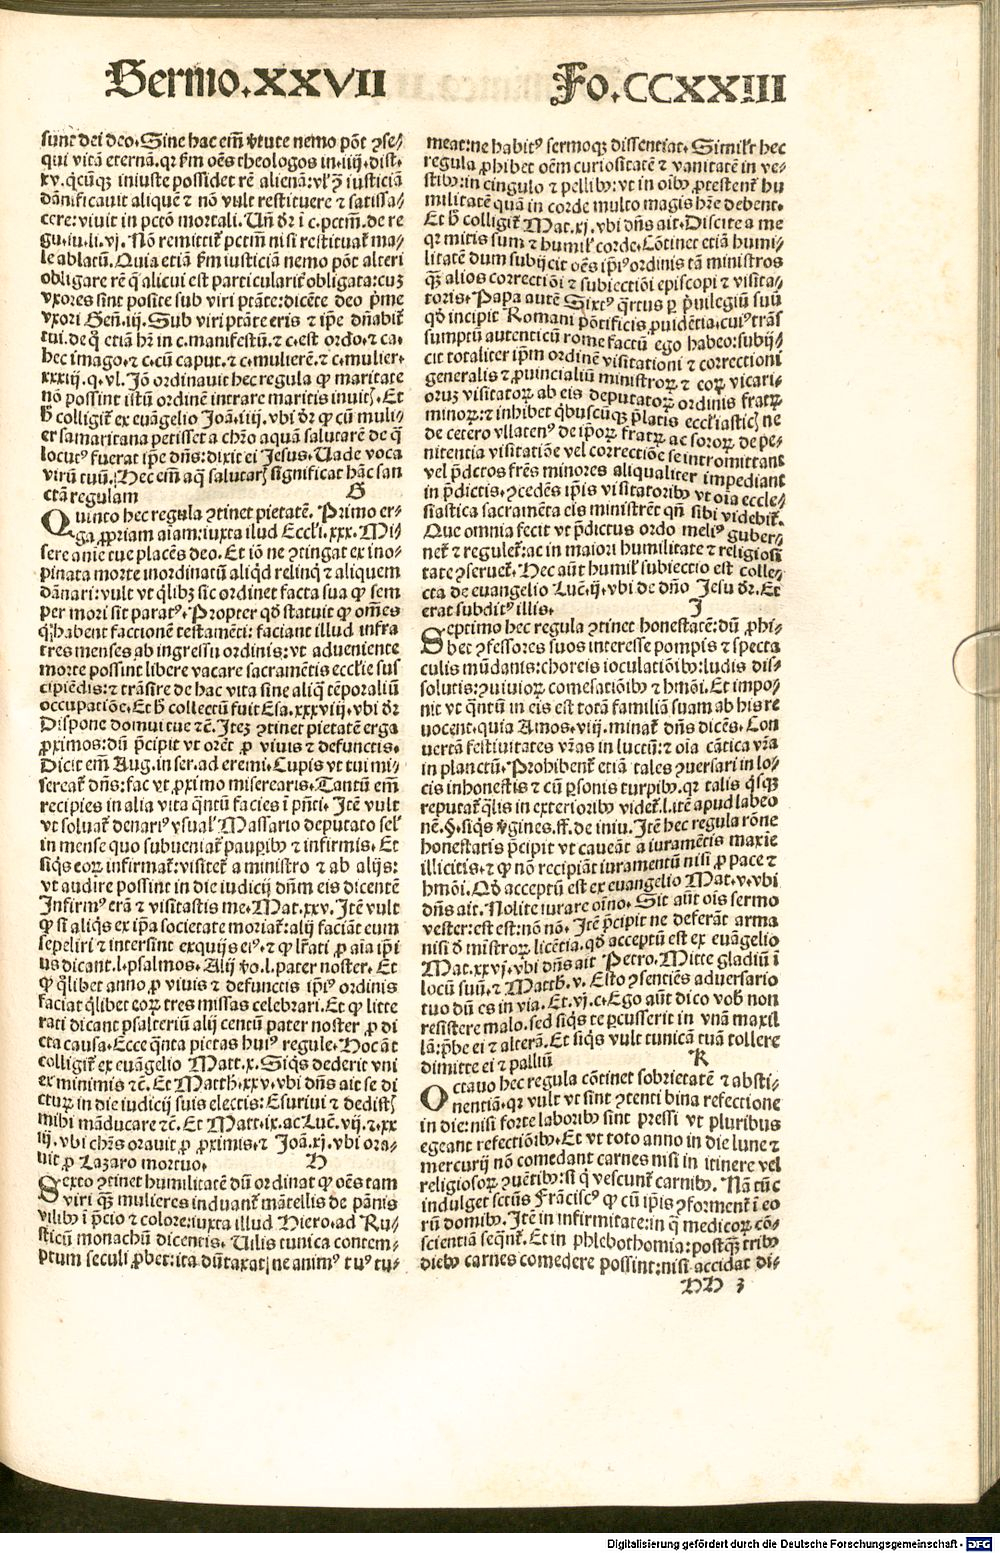 Sermo.XXVII
Fo.CCXXIII
sunt dei deo. Sine hac em̄ v̓tute nemo pōt ꝯse⸗
qui vitā eternā. qꝛ ẜm oēs theologos in .iiij. dist.
xv. q̄cūqꝫ iniuste possidet rē alienā: vl' ꝯ̄ iusticiā
dānificauit aliquē ⁊ nō vult restituere ⁊ satisfa⸗
cere: viuit in pctō mortali. Un̄ dr̄ ī c. pctm̄. de re
gu. iu. li. vj. Nō remittit̄ pctm̄ nisi restituat̄ ma⸗
le ablatū. Quia etiā ẜm iusticiā nemo pōt alteri
obligare rē q̄ alicui est particularit̄ obligata: cuꝫ
vxores sint posite sub viri ptāte: dicēte deo p̄me
vxori Gen̄. iij. Sub viri ptāte eris ⁊ ip̄e dn̄abit̄
tui. de q̄ etiā hr̄ in c. manifestū. ⁊ c. est ordo. ⁊ ca.
hec imago. ⁊ c. cū caput. ⁊ c. mulierē. ⁊ c. mulier.
xxxiij. q. vl. Jō ordinauit hec regula ꝙ maritate
nō possint istū ordinē intrare maritis inuitꝭ. Et
h̄ colligit̄ ex euāgelio Joā. iiij. vbi dr̄ ꝙ cū muli⸗
er samaritana petisset a chr̄o aquā salutarē de q̄
locut⁹ fuerat ip̄e dn̄s: dixit ei Jesus. Uade voca
virū tuū. Hec em̄ aq̄ salutarꝭ significat hāc san
ctā regulam G
Quinto hec regula ꝯtinet pietatē. Primo er⸗
ga ꝓpriam aīam: iuxta illud Eccl'i. xxx. Mi⸗
sere anīe tue placēs deo. Et iō ne ꝯtingat ex ino⸗
pinata morte inordinatū aliqd̓ relinq̄ ⁊ aliquem
dānari: vult vt q̄libꝫ sic ordinet facta sua ꝙ sem
per mori sit parat⁹. Propter qd̓ statuit ꝙ om̄es
q̄ habent factionē testamēti: faciant illud infra
tres menses ab ingressu ordinis: vt adueniente
morte possint libere vacare sacramētis eccl'ie sus
cipiēdis: ⁊ trāsire de hac vita sine aliq̄ tēporaliū
occupatiōe. Et h̄ collectū fuit Esa. xxxviij. vbi dr̄
Dispone domui tue ⁊c̄. Jteꝫ ꝯtinet pietatē erga
ꝓximos: dū p̄cipit vt orēt ꝓ viuis ⁊ defunctis.
Dicit em̄ Aug. in ser. ad eremi. Cupis vt tui mi⸗
sereat̄ dn̄s: fac vt ꝓximo miserearis. Tantū em̄
recipies in alia vita q̄ntū facies ī p̄n̄ti. Jtē vult
vt soluat̄ denari⁹ vsual' Massario deputato sel'
in mense quo subueniat̄ pauꝑibꝰ ⁊ infirmis. Et
siq̄s eoꝝ infirmat̄: visitet̄ a ministro ⁊ ab alijs:
vt audire possint in die iudicij dn̄m eis dicentē
Jnfirm⁹ erā ⁊ visitastis me. Mat. xxv. Jtē vult
ꝙ si aliq̄s ex ip̄a societate moriat̄: alij faciāt eum
sepeliri ⁊ intersint exquijs ei⁹. ⁊ ꝙ l'r̄ati ꝓ aīa ip̄i
us dicant .l. psalmos. Alij v̓o .l. pater noster. Et
ꝙ q̄libet anno ꝓ viuis ⁊ defunctis ip̄i⁹ ordinis
faciat q̄libet eoꝝ tres missas celebrari. Et ꝙ litte
rati dicant psalteriū alij centū pater noster ꝓ di
cta causa. Ecce q̄nta pietas hui⁹ regule. Hoc āt
colligit̄ ex euāgelio Matt. x. Siq̄s dederit vni
ex minimis ⁊c̄. Et Matth. xxv. vbi dn̄s ait se di
cturꝝ in die iudicij suis electis: Esuriui ⁊ dedistꝭ
mihi māducare ⁊c̄. Et Matt. ix. ac Luc̄. vij. ⁊. xx
iij. vbi chr̄s orauit ꝓ ꝓximis. ⁊ Joā. xj. vbi ora⸗
uit ꝓ Lazaro mortuo. H
Sexto ꝯtinet humilitatē dū ordinat ꝙ oēs tam
viri qꝫ̄ mulieres induant̄ mātellis de pānis
vilibꝰ ī p̄cio ⁊ colore: iuxta illud Hiero. ad Ru⸗
sticū monachū dicentis. Uilis tunica contem⸗
ptum seculi ꝓbet: ita dūtaxat ne anim⁹ tu⁹ tu⸗
meat: ne habit⁹ sermoqꝫ dissentiat. Simil'r hec
regula ꝓhibet oēm curiositatē ⁊ vanitatē in ve⸗
stibꝰ: in cingulo ⁊ pellibꝰ: vt in oībꝰ ꝓtestent̄ hu
militatē quā in corde multo magis hr̄e debent.
Et h̄ colligit̄ Mat. xj. vbi dn̄s ait. Discite a me
qꝛ mitis sum ⁊ humil' corde. Cōtinet etiā humi⸗
litatē dum subijcit oēs ip̄i⁹ ordinis tā ministros
qꝫ̄ alios correctiōi ⁊ subiectiōi episcopi ⁊ visita⸗
toris. Papa autē Sixt⁹ q̄rtus ꝑ p̄uilegiū suū
qd̓ incipit Romani pōtificis ꝓuidētia. cui⁹ trās
sumptū autenticū rome factū ego habeo: subij⸗
cit totaliter ip̄m ordinē visitationi ⁊ correctioni
generalis ⁊ ꝓuincialiū ministroꝝ ⁊ eoꝝ vicari⸗
oruꝫ visitatoꝝ ab eis deputatoꝝ ordinis fratꝝ
minoꝝ: ⁊ inhibet q̄buscūqꝫ p̄latis eccl'iasticꝭ ne
de cetero vllaten⁹ de ip̄oꝝ fratꝝ ac soroꝝ de pe⸗
nitentia visitatiōe vel correctiōe se intromittant
vel p̄dictos fr̄es minores aliqualiter impediant
in p̄dictis. ꝯcedēs ip̄is visitatoribꝰ vt oīa eccle⸗
siastica sacramēta eis ministrēt qn̄ sibi videbit̄.
Que omnia fecit vt p̄dictus ordo meli⁹ guber⸗
net̄ ⁊ regulet̄: ac in maiori humilitate ⁊ religiosi
tate ꝯseruet̄. Hec aūt humil' subiectio est colle⸗
cta de euangelio Luc̄. ij. vbi de dn̄o Jesu dr̄. Et
erat subdit⁹ illis. J
Septimo hec regula ꝯtinet honestatē: dū ꝓhi⸗
bet ꝯfessores suos interesse pompis ⁊ specta
culis mūdanis: choreis ioculatiōibꝰ: ludis dis⸗
solutis: ꝯuiuioꝝ comesatiōibꝰ ⁊ hmōi. Et impo⸗
nit vt q̄ntū in eis est totā familiā suam ab his re
uocent. quia Amos. viij. minat̄ dn̄s dicēs. Con
uertā festiuitates vr̄as in luctū: ⁊ oīa cātica vr̄a
in planctū. Prohibent̄ etiā tales ꝯuersari in lo⸗
cis inhonestis ⁊ cū ꝑsonis turpibꝰ. qꝛ talis q̄sqꝫ
reputat̄ q̄lis in exterioribꝰ videt̄. l. itē apud labeo
nē. §. siq̄s v̓gines. ff. de iniu. Jtē hec regula rōne
honestatis p̄cipit vt caueāt a iuramētis maxīe
illicitis. ⁊ ꝙ nō recipiāt iuramentū nisi ꝓ pace ⁊
hmōi. Qd̓ acceptū est ex euangelio Mat. v. vbi
dn̄s ait. Nolite iurare oīno. Sit aūt oīs sermo
vester: est est: nō nō. Jtē p̄cipit ne deferāt arma
nisi d̓ mīstroꝝ licētia. qd̓ acceptū est ex euāgelio
Mat. xxvj. vbi dn̄s ait Petro. Mitte gladiū ī
locū suū. ⁊ Matth. v. Esto ꝯsentiēs aduersario
tuo dū es in via. Et. vj. c. Ego aūt dico vob̓ non
resistere malo. sed siq̄s te ꝑcusserit in vnā maxil
lā: p̄be ei ⁊ alterā. Et siq̄s vult tunicā tuā tollere
dimitte ei ⁊ palliū K
Octauo hec regula cōtinet sobrietatē ⁊ absti⸗
nentiā. qꝛ vult vt sint ꝯtenti bina refectione
in die: nisi forte laboribꝰ sint pressi vt pluribus
egeant refectiōibꝰ. Et vt toto anno in die lune ⁊
mercurij nō comedant carnes nisi in itinere vel
religiosoꝝ ꝯuētibꝰ: si q̄ vescunt̄ carnibꝰ. Nā tūc
indulget sct̄us Frācisc⁹ ꝙ cū ip̄is ꝯforment̄ ī eo
rū domibꝰ. Jtē in infirmitate: in q̄ medicoꝝ cō⸗
scientiā seq̄nt̄. Et in phlebothomia: postqꝫ̄ tribꝰ
diebꝰ carnes comedere possint: nisi accidat di⸗
HH 3
Digitalisierung gefördert durch die Deutsche Forschungsgemeinschaft - DFG